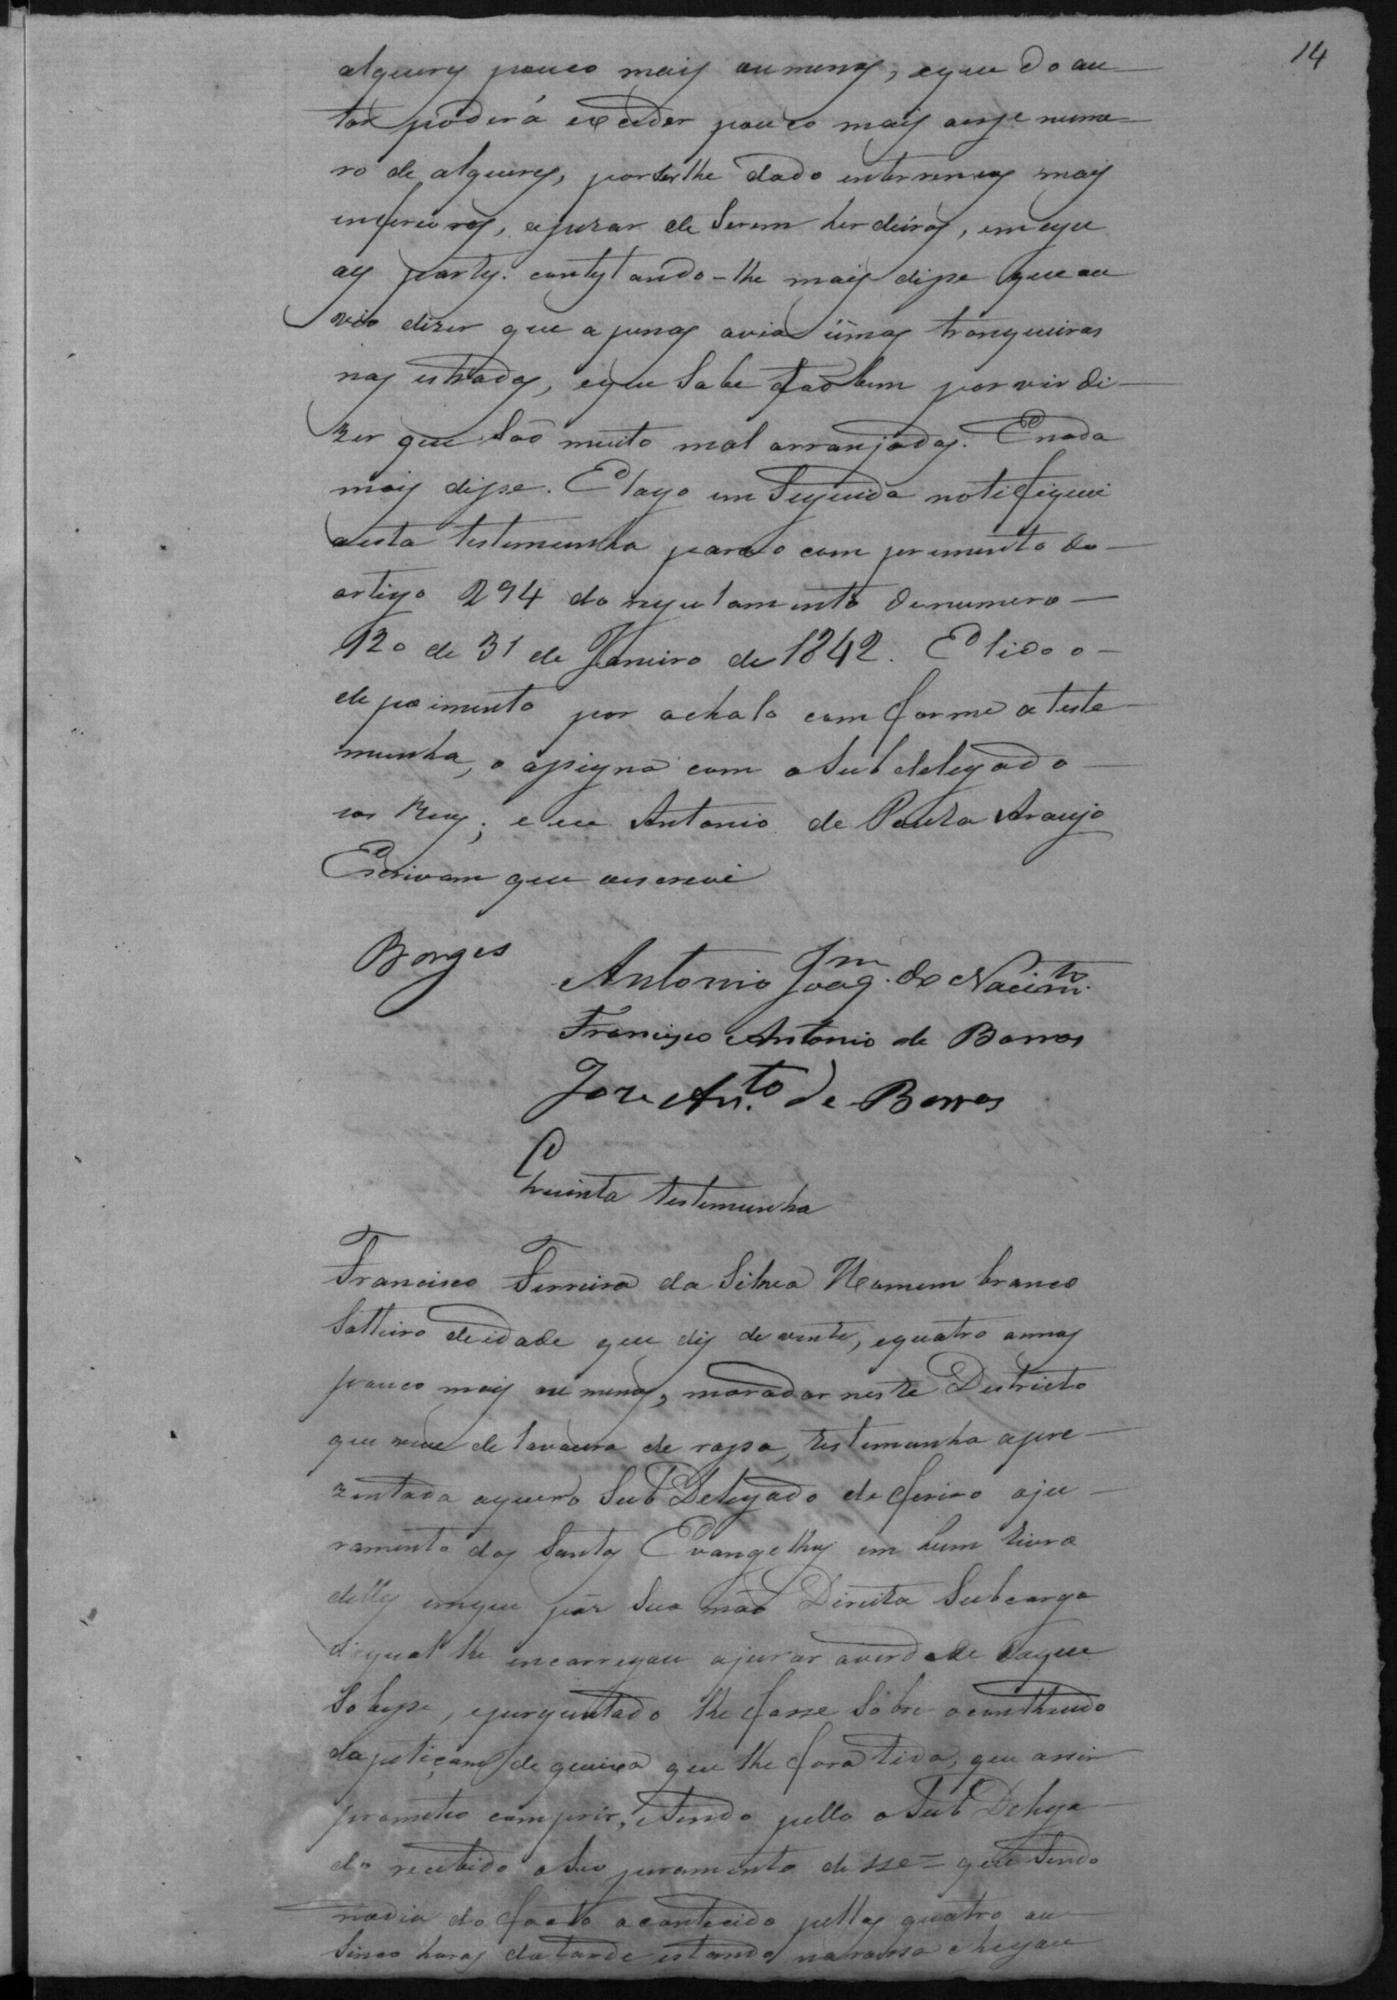 14
alquers pouco mais ou menos, eque do au
tor poderá exceder pouco mais aesse nume-
ro de alquers, por ser lhe dado enterrenos mais
inferiores, apezar de serem herdeiros, em egu
as partes. contestando-lhe mais disse que ou
vio dizer que apenas avia ũmas tranqueiras
nas estradas, eque sabe tãobem por vir di-
zer que são muito mal arranjadas. E nada
mais disse. E lago em seguida notifiquei
aesta testemunha para o com primento do
artigo 294 do regulamento denumero
120 de 31 de Janeiro de 1842. E lido o
depoimento por achalo comforme a teste
munha, o assigna com o Subdelegado
eos Reus; e eu Antonio de Paula Araujo
Escrivam que oescrevi
Borges
Antonio Joaq.m do Nacim.to
Francisco Antonio de Barros
Joze An.to de Barros
Quinta testemunha
Francisco Ferreira da Silva Homem branco
Solteiro deidade que dis de vente, equatro annos
pouco mais ou menos, morador neste Districto
que vive de lavoura de rossa, testemunha apre
zentada aquem o Sub Delegado deferio oju
ramento dos Santos Evangelhos em hum Livro
delles emque pôz sua mão Direita Subcargo
doqual lhe encarregou ajurar averdade doque
Sobesse, eperguntado lhe fosse Sôbre oconthiudo
da petiçam de queixa que lhe fora lida, que assim
prometeo comprir, e Sendo pello o Sub Delega
do recebido o seu juramento disse = que Sendo
nodia do facto acontecido pellas quatro ou
Sinco horas da tarde estando narossa chegou